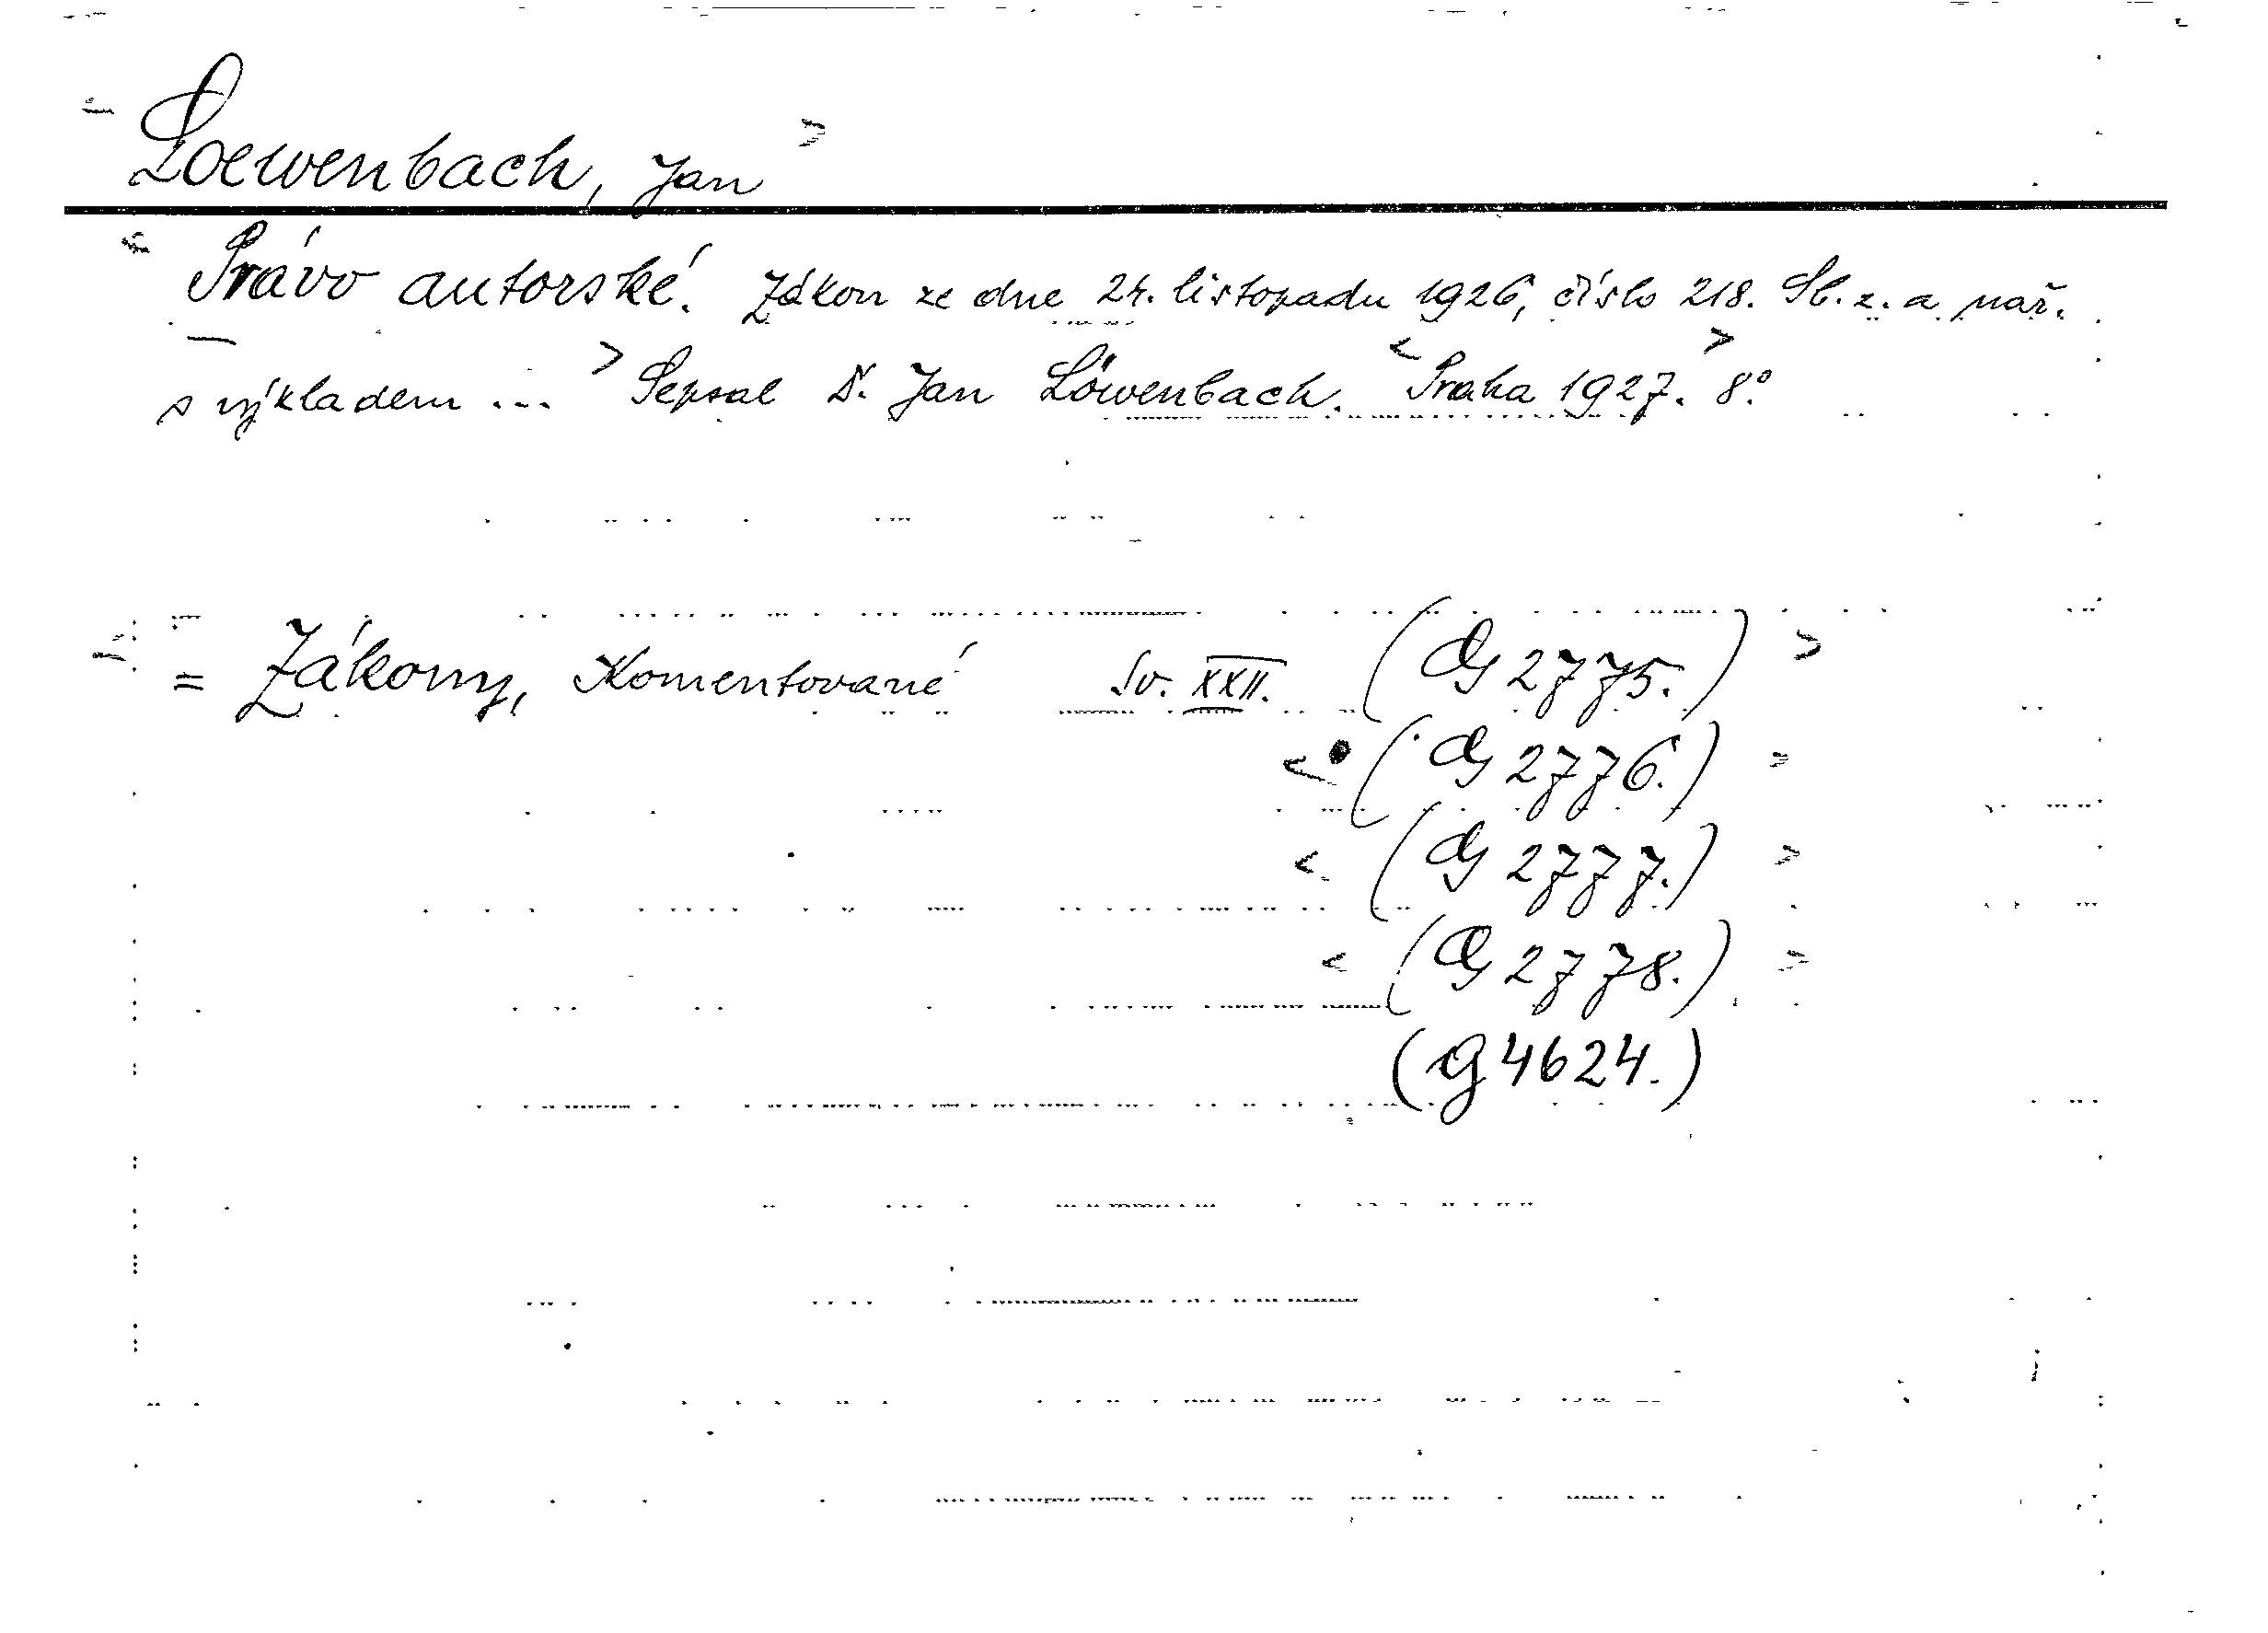 Loewenbach, Jan
Právo autorské. Zákon ze dne 24. listopadu 1926, číslo 218. Sb. z. a nař.
s výkladem ... Sepsal Dr. Jan Löwenbach. Praha 1927. 8°.
= Zákony, Komentované Sv. XXII. (G 2775.)
(G 2776.)
(G 2777.)
(G 2778.)
(G 4624.)